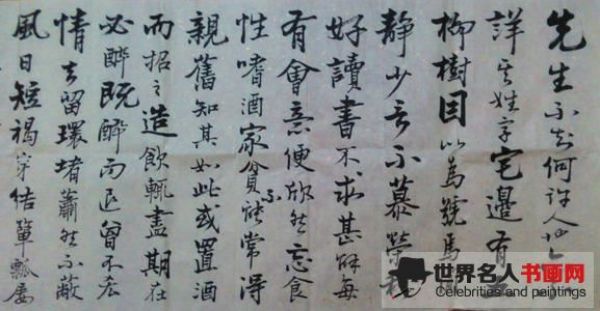 先生不知何許人也亦不
詳其姓字宅邊有五
柳樹因以為號焉
靜少言不慕榮利
好讀書不求甚解每
有會意便欣然忘食
性嗜酒家貧不能常得
親舊知其如此或置酒
而招之造飲輒盡期在
必醉既醉而退曾不吝
情去留環堵蕭然不蔽
風日短褐穿結簞瓢屢
世界名人书画网
Celebrities and paintings